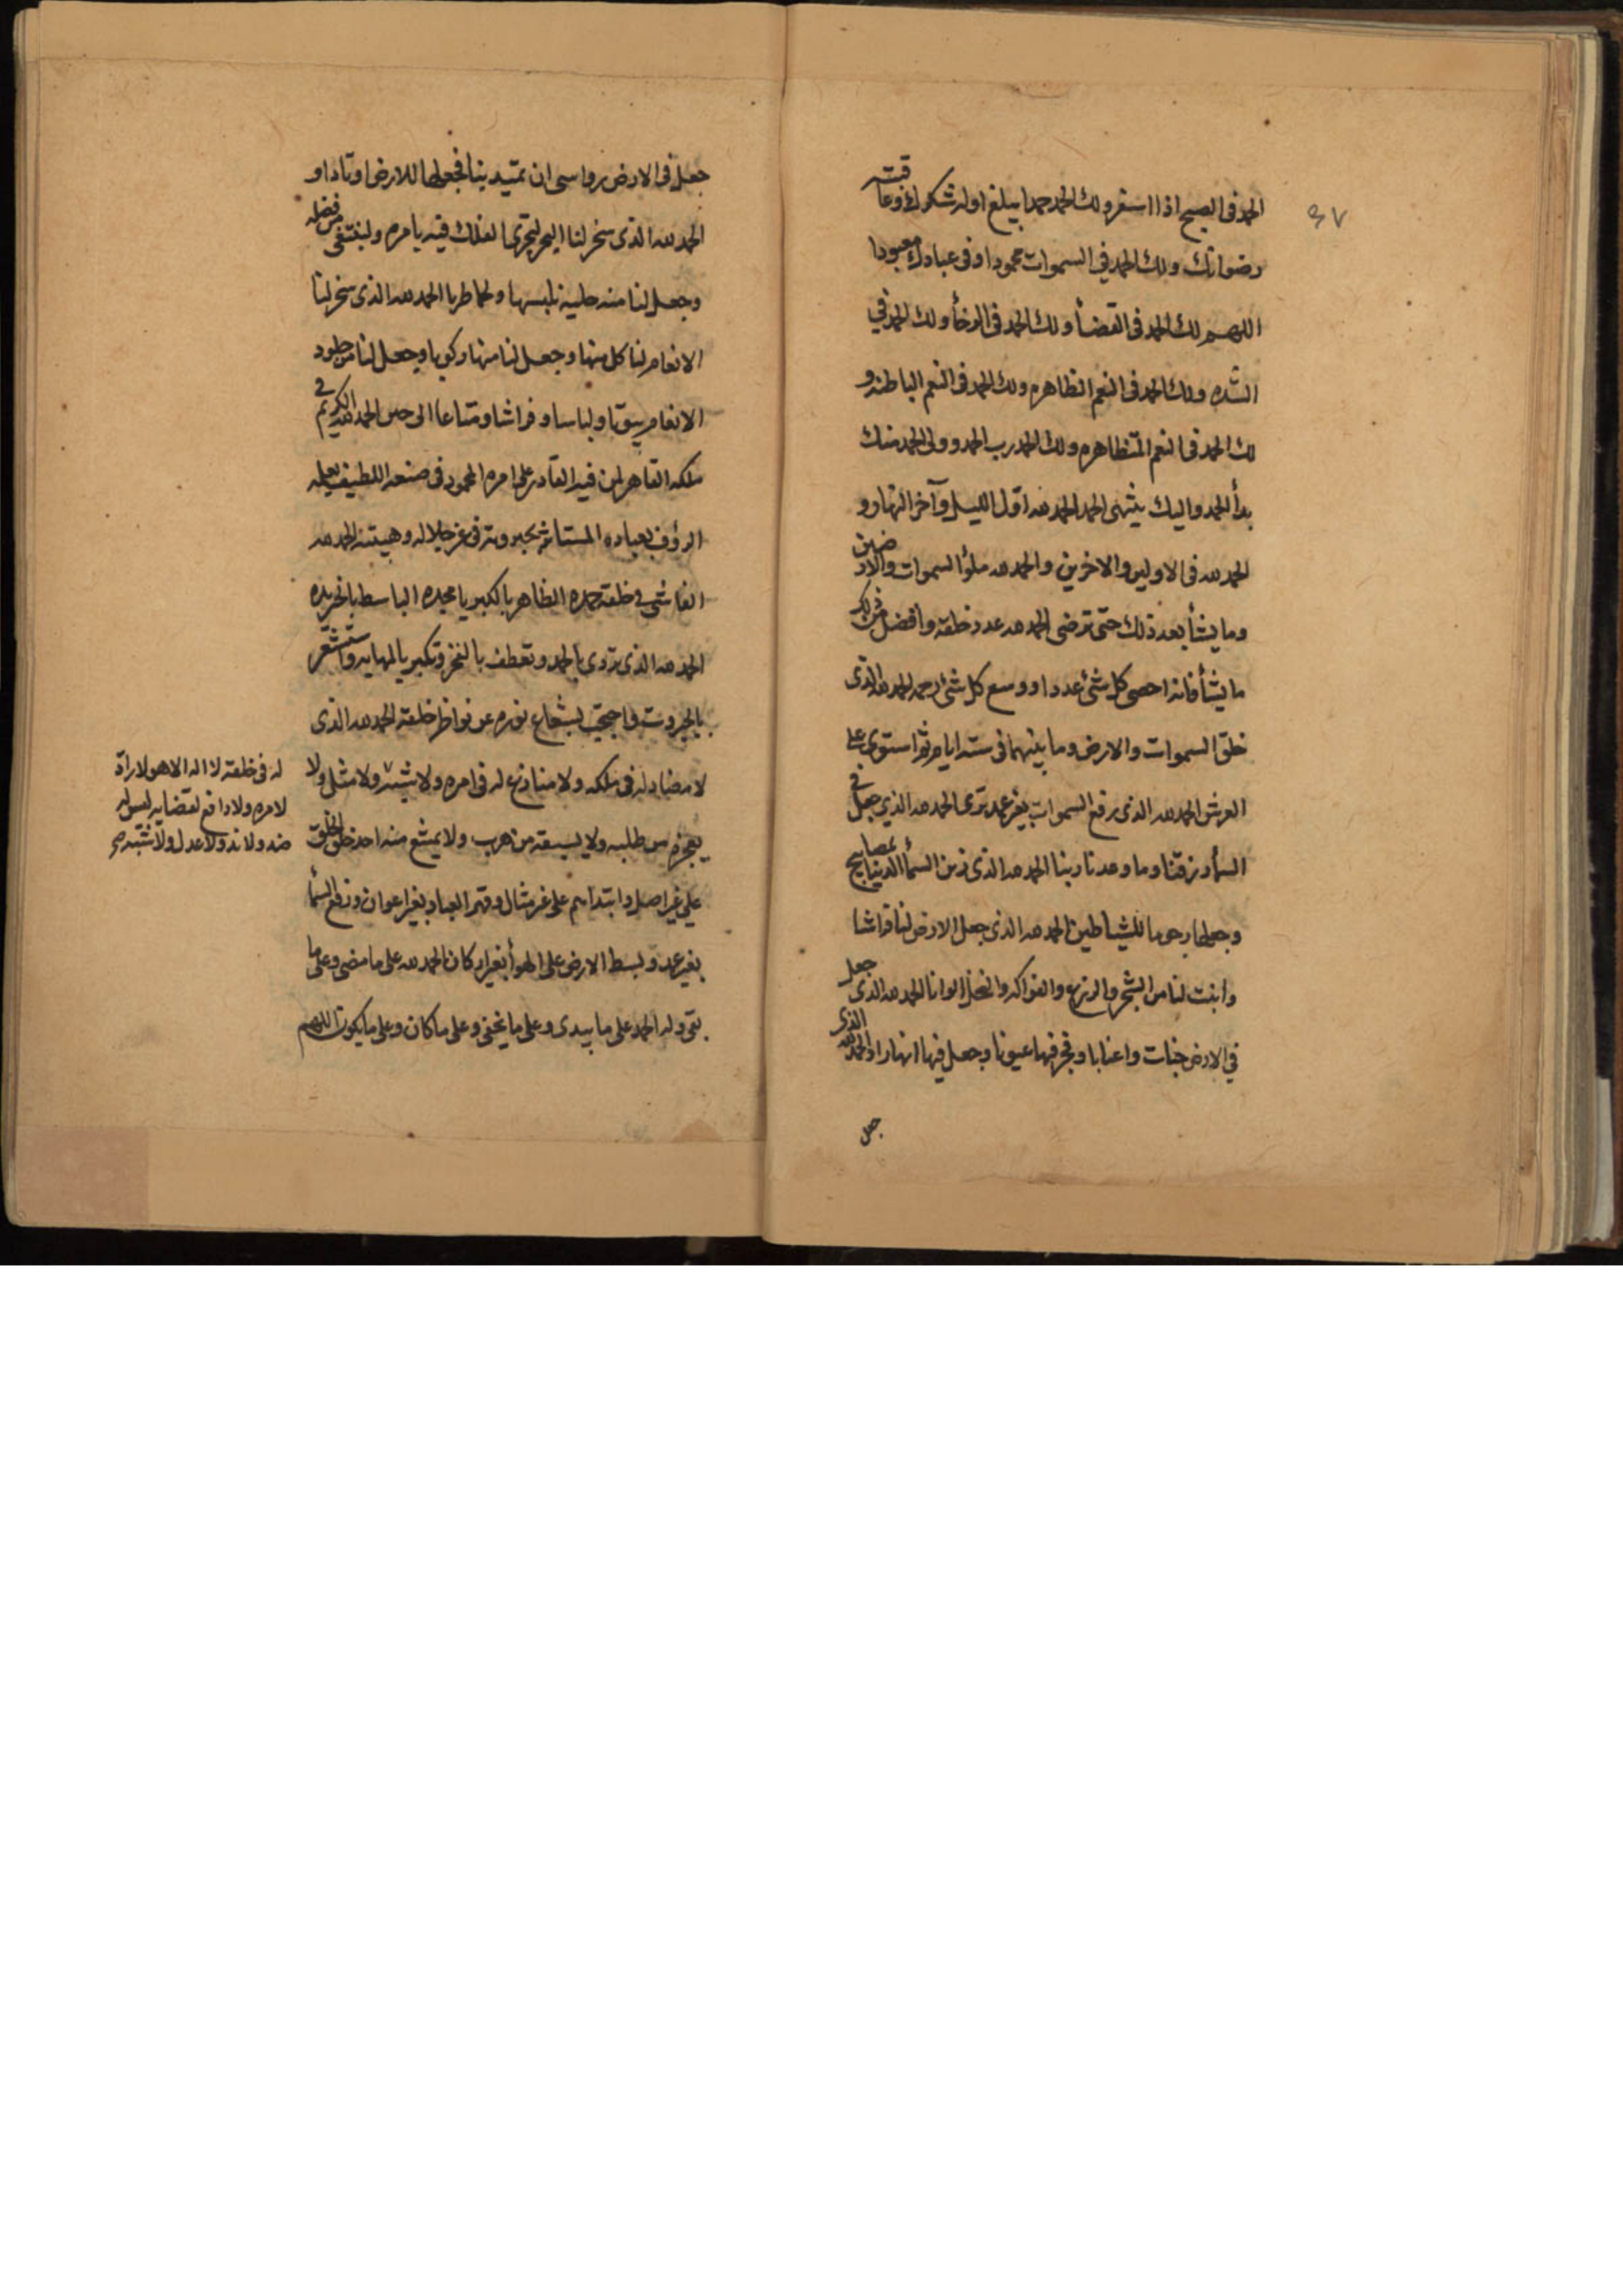 ٣٧
الحمد فى الصبح اذا اسفر ولك الحمد حمدا يبلغ اوله شكرك وعاقبته
رضوانك ولك الحمد في السموات محمودا وفى عبادك معبودا
اللهم لك الحمد فى القضأ ولك الحمد فى الرخأ ولك الحمد في
الشده ولك الحمد فى النعم الظاهره ولك الحمد فى النعم الباطنه و
لك الحمد فى النعم المتظاهره ولك الحمد رب الحمد وولى الحمد منك
بدأ الحمد واليك ينتهى الحمد الحمد لله اوّل الليل وآخر النهار و
الحمد لله فى الاولين والاخرين والحمد لله ملؤ السموات والارضين
وما يشأ بعد ذلك حتى ترضى الحمد لله عدد خلقه وافضل من ذلك
ما يشأ فانه احصى كل شئ عددا ووسع كل شئ رحمه الحمد لله الذى
خلق السموات والارض وما بينهما فى سته ايام ثم استوى على
العرش الحمد لله الذى رفع السموات بغير عمد ترى الحمد لله الذي جعل في
السمأ رزقنا وما وعدنا ربنا الحمد لله الذى زين السمأ الدنيا بمصابيح
وجعلها رجوما للشياطين الحمد لله الذى جعل الارض لنا فراشا
وانبت لنا من الشجر والزرع والفواكه والنخل الوانا الحمد لله الذى جعل
في الارض جنات واعنابا وفجر فيها عيونا وجعل فيها انهارا والحمد لله الذى
جعل
جعل فى الارض رواسى ان تميد بنا فجعلها للارض اوتادا و
الحمد لله الذى سخر لنا البحر لتجرى الفلك فيه بامره ولنبتغى من فضله
وجعل لنا منه حلية نلبسها ولحما طريا الحمد لله الذى سخر لنا
الانعام لنا كل منها وجعل لنا منها ركوبا وجعل لنا من جلود
الانعام بيوتا ولباسا وفراشا ومتاعا الى حين الحمد لله الكريم في
ملكه القاهر لمن فيه القادر على امره المحمود فى صنعه اللطيف بعلمه
الرؤف بعباده المستاثر بجبروته فى عز جلاله وهيبته الحمد لله
الفاشى فى خلقه حمده الظاهر بالكبريا مجده الباسط بالخير يده
الحمد لله الذى تردى بالحمد وتعطف بالفخر وتكبر بالمهابه واستشعر
بالجبروت واحتجب بشعاع نوره عن نواظر خلقه الحمد لله الذى
لا مضاد له فى ملكه ولا منازع له فى امره ولا شبه ولا مثل ولا
له فى خلقه لا اله الا هو لا رادّ
لامره ولا دافع لقضايه ليس له
ضد ولا ند ولا عدل ولا شبه صح
يعجزه من طلبه ولا يسبقه من هرب ولا يمتنع منه احد خلق الخلق
على غير اصل وابتدأهم على غير مثال وقهر العباد بغير اعوان ورفع السمأ
بغير عمد وبسط الارض على الهوأ بغير اركان الحمد لله على ما مضى وعلى ما
بقى وله الحمد على ما يبدى وعلى ما يخفى وعلى ما كان وعلى ما يكون اللهم